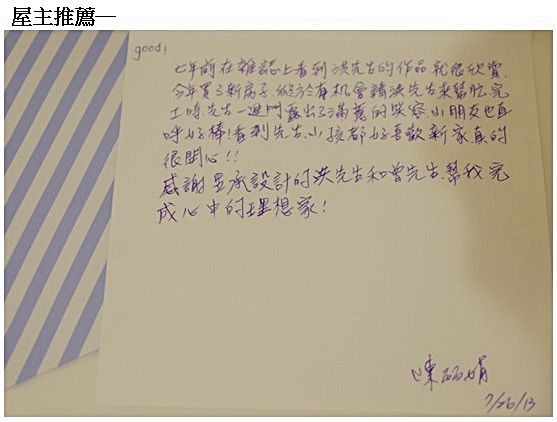 屋主推薦一
good!
七年前在雜誌上看到洪先生的作品,就很欣賞.
今年買了新房子,終於有机會請洪先生來幫忙,完
工時,先生一進門露出了滿意的笑容,小朋友也直
呼好棒!看到先生、小孩都好喜歡新家,真的
很開心!!
感謝昱承設計的洪先生和曾先生,幫我完
成心中的理想家!
陳 娟
7/26/13